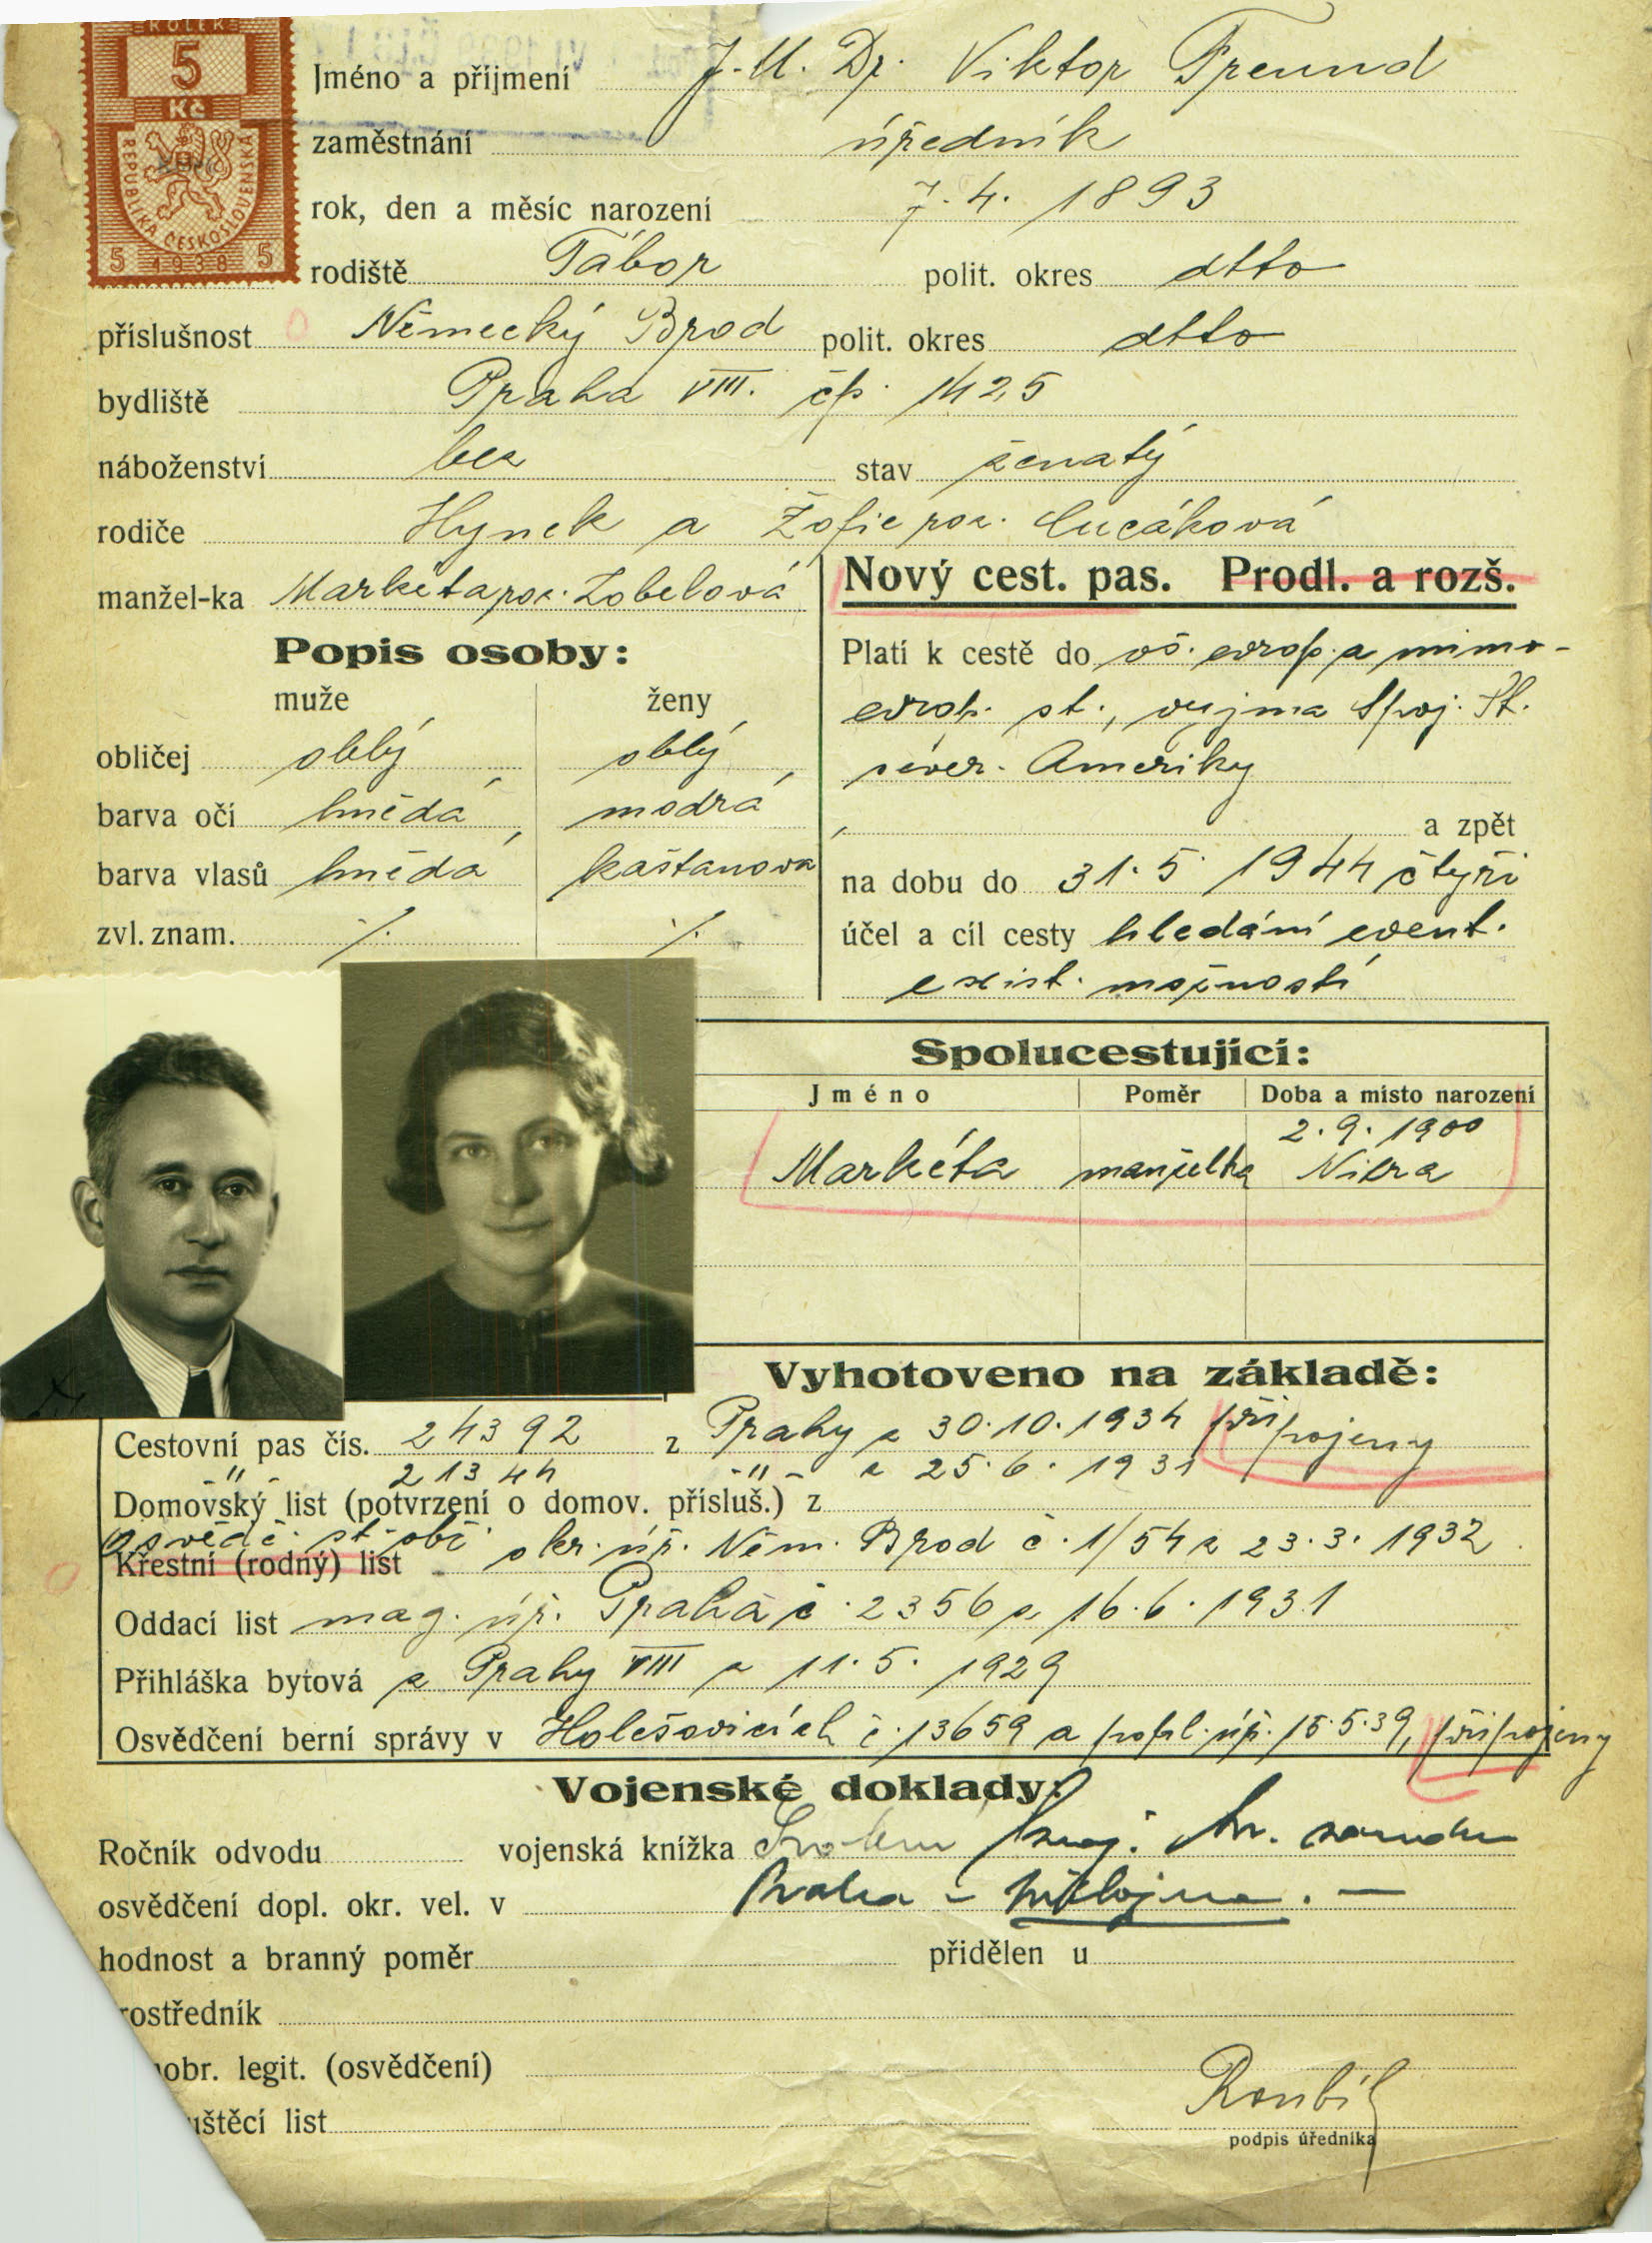 KOLEK
5
Kč
REPUBLIKA ČESKOSLOVENSKÁ
5 1938 5
Jméno a příjmení J. U. Dr. Viktor Freund
zaměstnání úředník
rok, den a měsíc narození 7. 4. 1893
rodiště Tábor polit. okres dtto
příslušnost Německý Brod polit. okres dtto
bydliště Praha VIII. čp. 1425
náboženství bez stav ženatý
rodiče Hynek a Žofie roz.
manžel-ka Markéta roz. Zobelová
Nový cest. pas. Prodl. a rozš.
Popis osoby:
muže ženy
obličej oblý oblý
barva očí hnědá modrá
barva vlasů hnědá kaštanova
zvl. znam. ⁒ ⁒
Platí k cestě do vš. evrop. a mimo-
evrop. st., vyjma Spoj. St.
sever. Ameriky
a zpět
na dobu do 31. 5. 1944 čtyři
účel a cíl cesty hledání event.
exist. možností
Spolucestující:
Jméno Poměr Doba a místo narození
2. 9. 1900
Markéta manželka Nitra
Vyhotoveno na základě:
Cestovní pas čís. 24392 z Prahy z 30. 10. 1934 připojeny
-"- 21344 -"- z 25. 6. 1931
Domovský list (potvrzení o domov. přísluš.) z
osvědč. st. obč. okr. úř. Něm. Brod č. 1/54 z 23. 3. 1932
Křestní (rodný) list
Oddací list mag. úř. Praha č. 2356 z 16. 6. 1931
Přihláška bytová z Prahy VIII z 11. 5. 1929
Osvědčení berní správy v Holešovicích č. 13659 a popl. úř. 15. 5. 39, připojeny
Vojenské doklady:
Ročník odvodu vojenská knížka
osvědčení dopl. okr. vel. v Praha -
hodnost a branný poměr přidělen u
rostředník
obr. legit. (osvědčení)
uštěcí list
Roubík
podpis úředníka